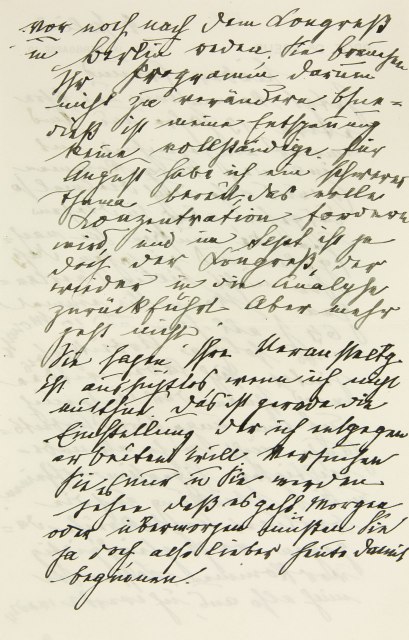 vor noch nach dem Congreß
in Berlin reden. Sie brauchen
Ihr Programm darum
nicht zu verändern. Ohne=
dieß ist meine Entspannung
keine vollständige. Für
August habe ich ein schweres
Thema bereit, das volle
Konzentration fordern
wird und im Sept ist ja
doch der Congreß, der
wieder in die Analyse
zurückführt. Aber mehr
geht nicht.
Sie sagen, Ihre Veranstaltg
ist aussichtslos wenn ich nicht
mitthue. Das ist gerade die
Einstellung der ich entgegen
arbeiten will. Versuchen
Sie es nur u Sie werden
sehen daß es geht. Morgen
oder übermorgen müßten Sie
ja doch, also lieber heute damit
beginnen.